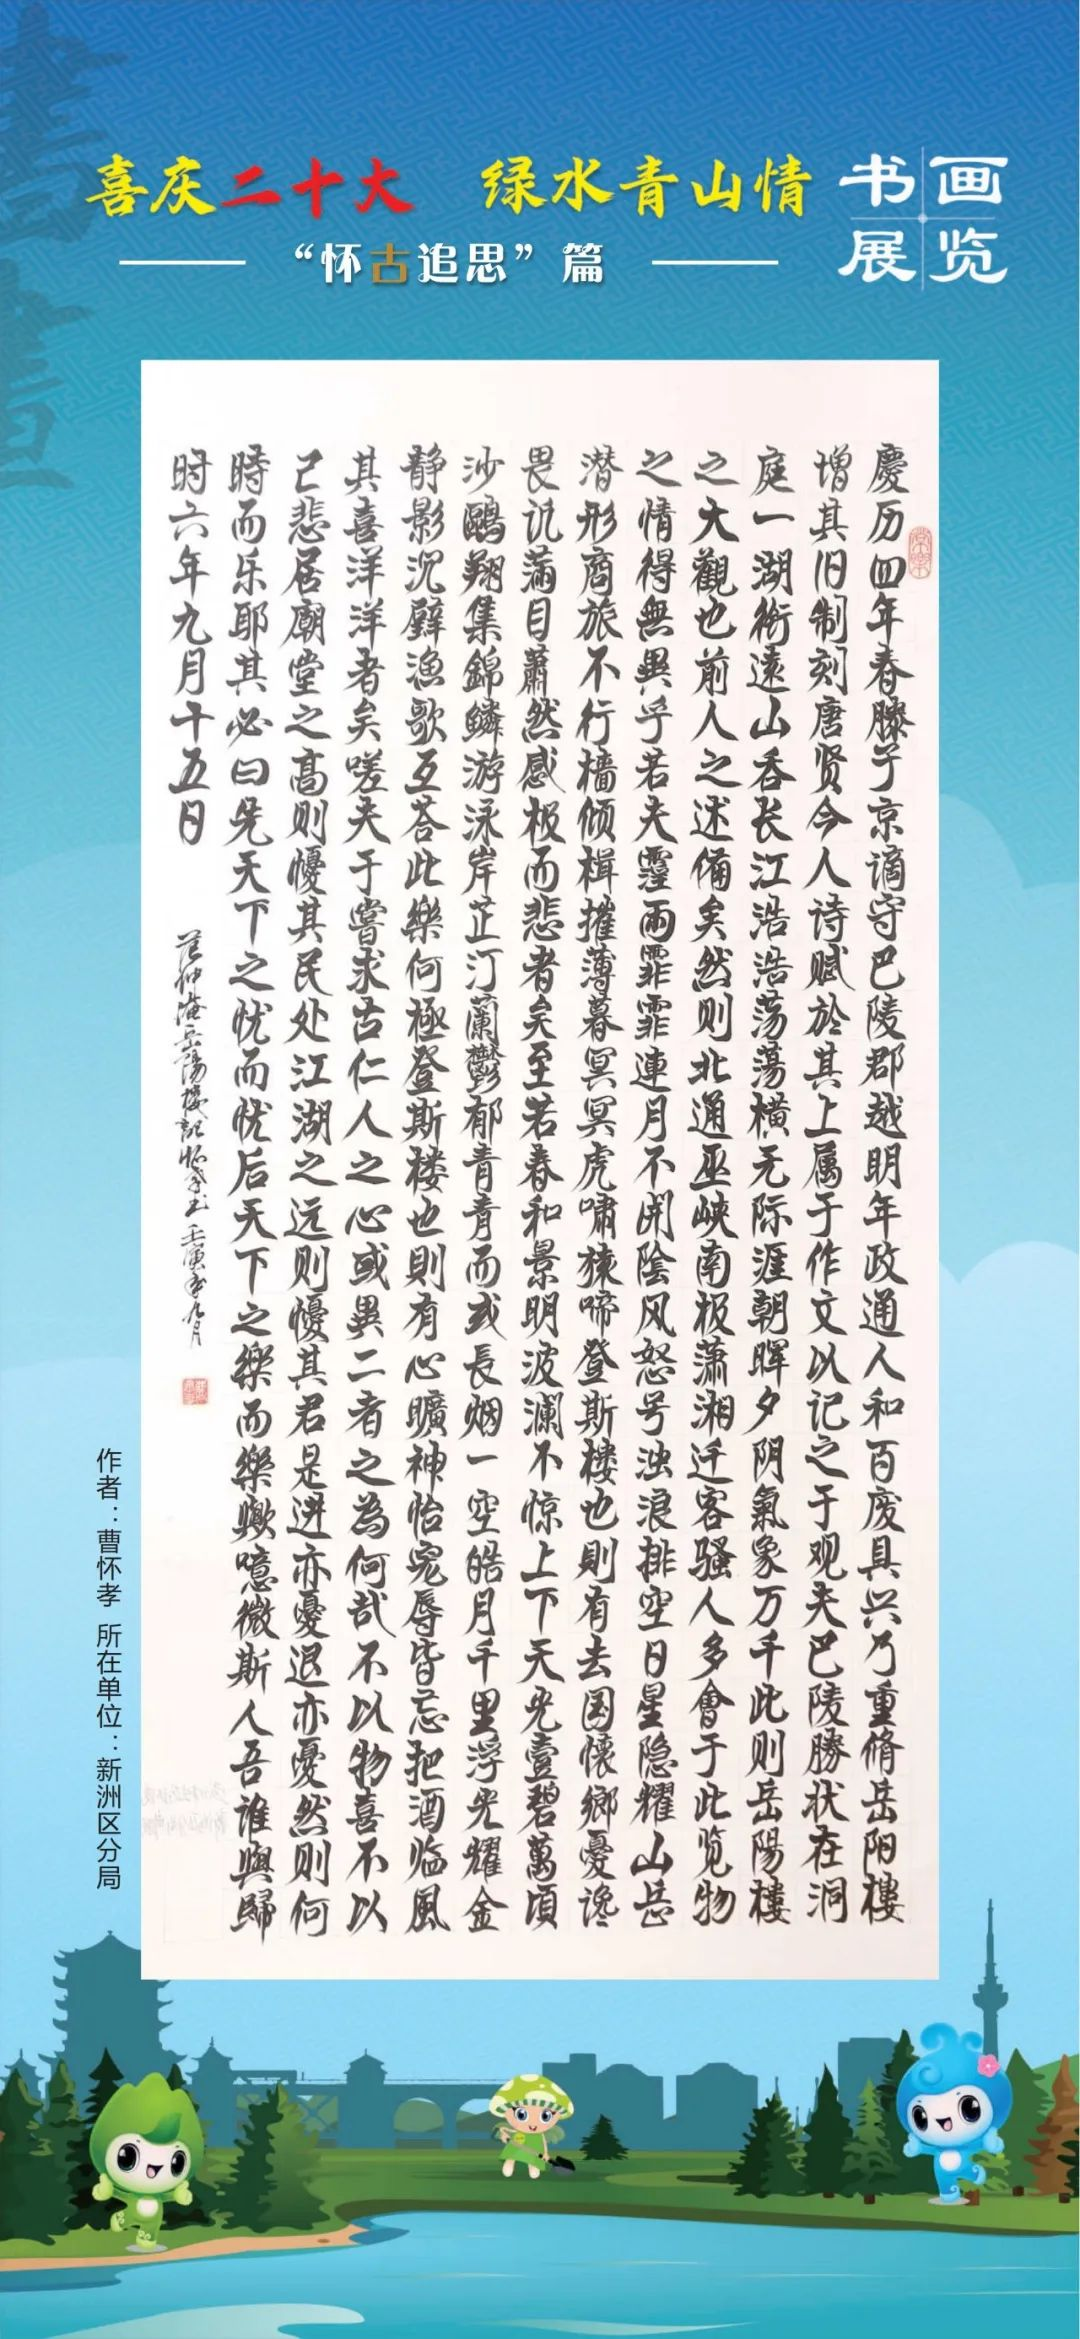 喜庆二十大 绿水青山情
书画展览
“怀古追思”篇
慶历四年春滕子京谪守巴陵郡越明年政通人和百废具兴乃重脩岳阳樓
增其旧制刻唐贤今人诗赋於其上属于作文以记之于观夫巴陵勝状在洞
庭一湖衔遠山吞长江浩浩荡蕩横无际涯朝暉夕阴氣象万千此则岳陽樓
之大觀也前人之述俻矣然则北通巫峡南极潇湘迁客骚人多會于此览物
之情得無異乎若夫霪雨霏霏連月不開陰风怒号浊浪排空日星隐耀山岳
潜形商旅不行檣倾楫摧薄暮冥冥虎啸猿啼登斯楼也則有去国懷鄉憂谗
畏讥满目蕭然感极而悲者矣至若春和景明波澜不惊上下天光壹碧萬頃
沙鷗翔集錦鱗游泳岸芷汀蘭鬱郁青青而或長烟一空皓月千里浮光耀金
静影沉璧渔歌互答此樂何極登斯楼也則有心曠神怡宠辱皆忘把酒临風
其喜洋洋者矣嗟夫于嘗求古仁人之心或異二者之為何哉不以物喜不以
己悲居廟堂之高则懮其民处江湖之远则懮其君是进亦憂退亦憂然则何
時而乐耶其必曰先天下之忧而忧后天下之樂而樂歟噫微斯人吾谁與歸
时六年九月十五日
范仲淹岳陽楼記怀孝书壬寅年九月
作者：曹怀孝 所在单位：新洲区分局